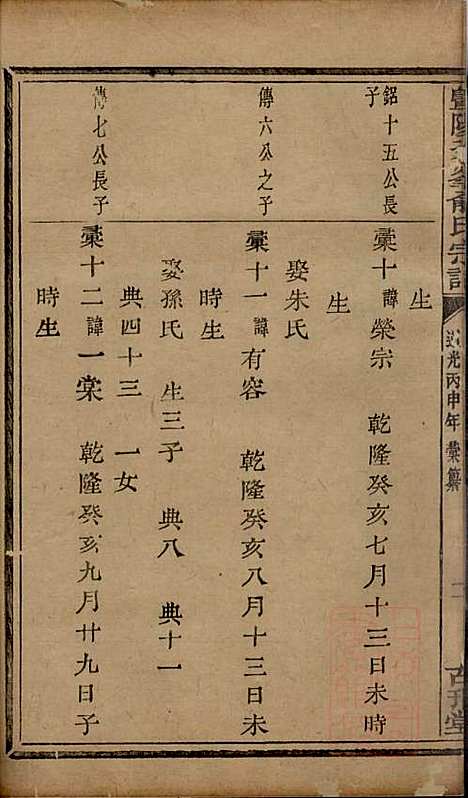 氏宗譜
光丙申年
鋁十五公長子
橐十諱榮宗 乾隆癸亥七月十三日未時
生
娶朱氏
生
傳六公之子
橐十一諱有容 乾隆癸亥八月十三日未
時生
娶孫氏 生三子 典八 典十一
典四十三 一女
傳七公長子
橐十二諱一棠 乾隆癸亥九月廿九日子
時生